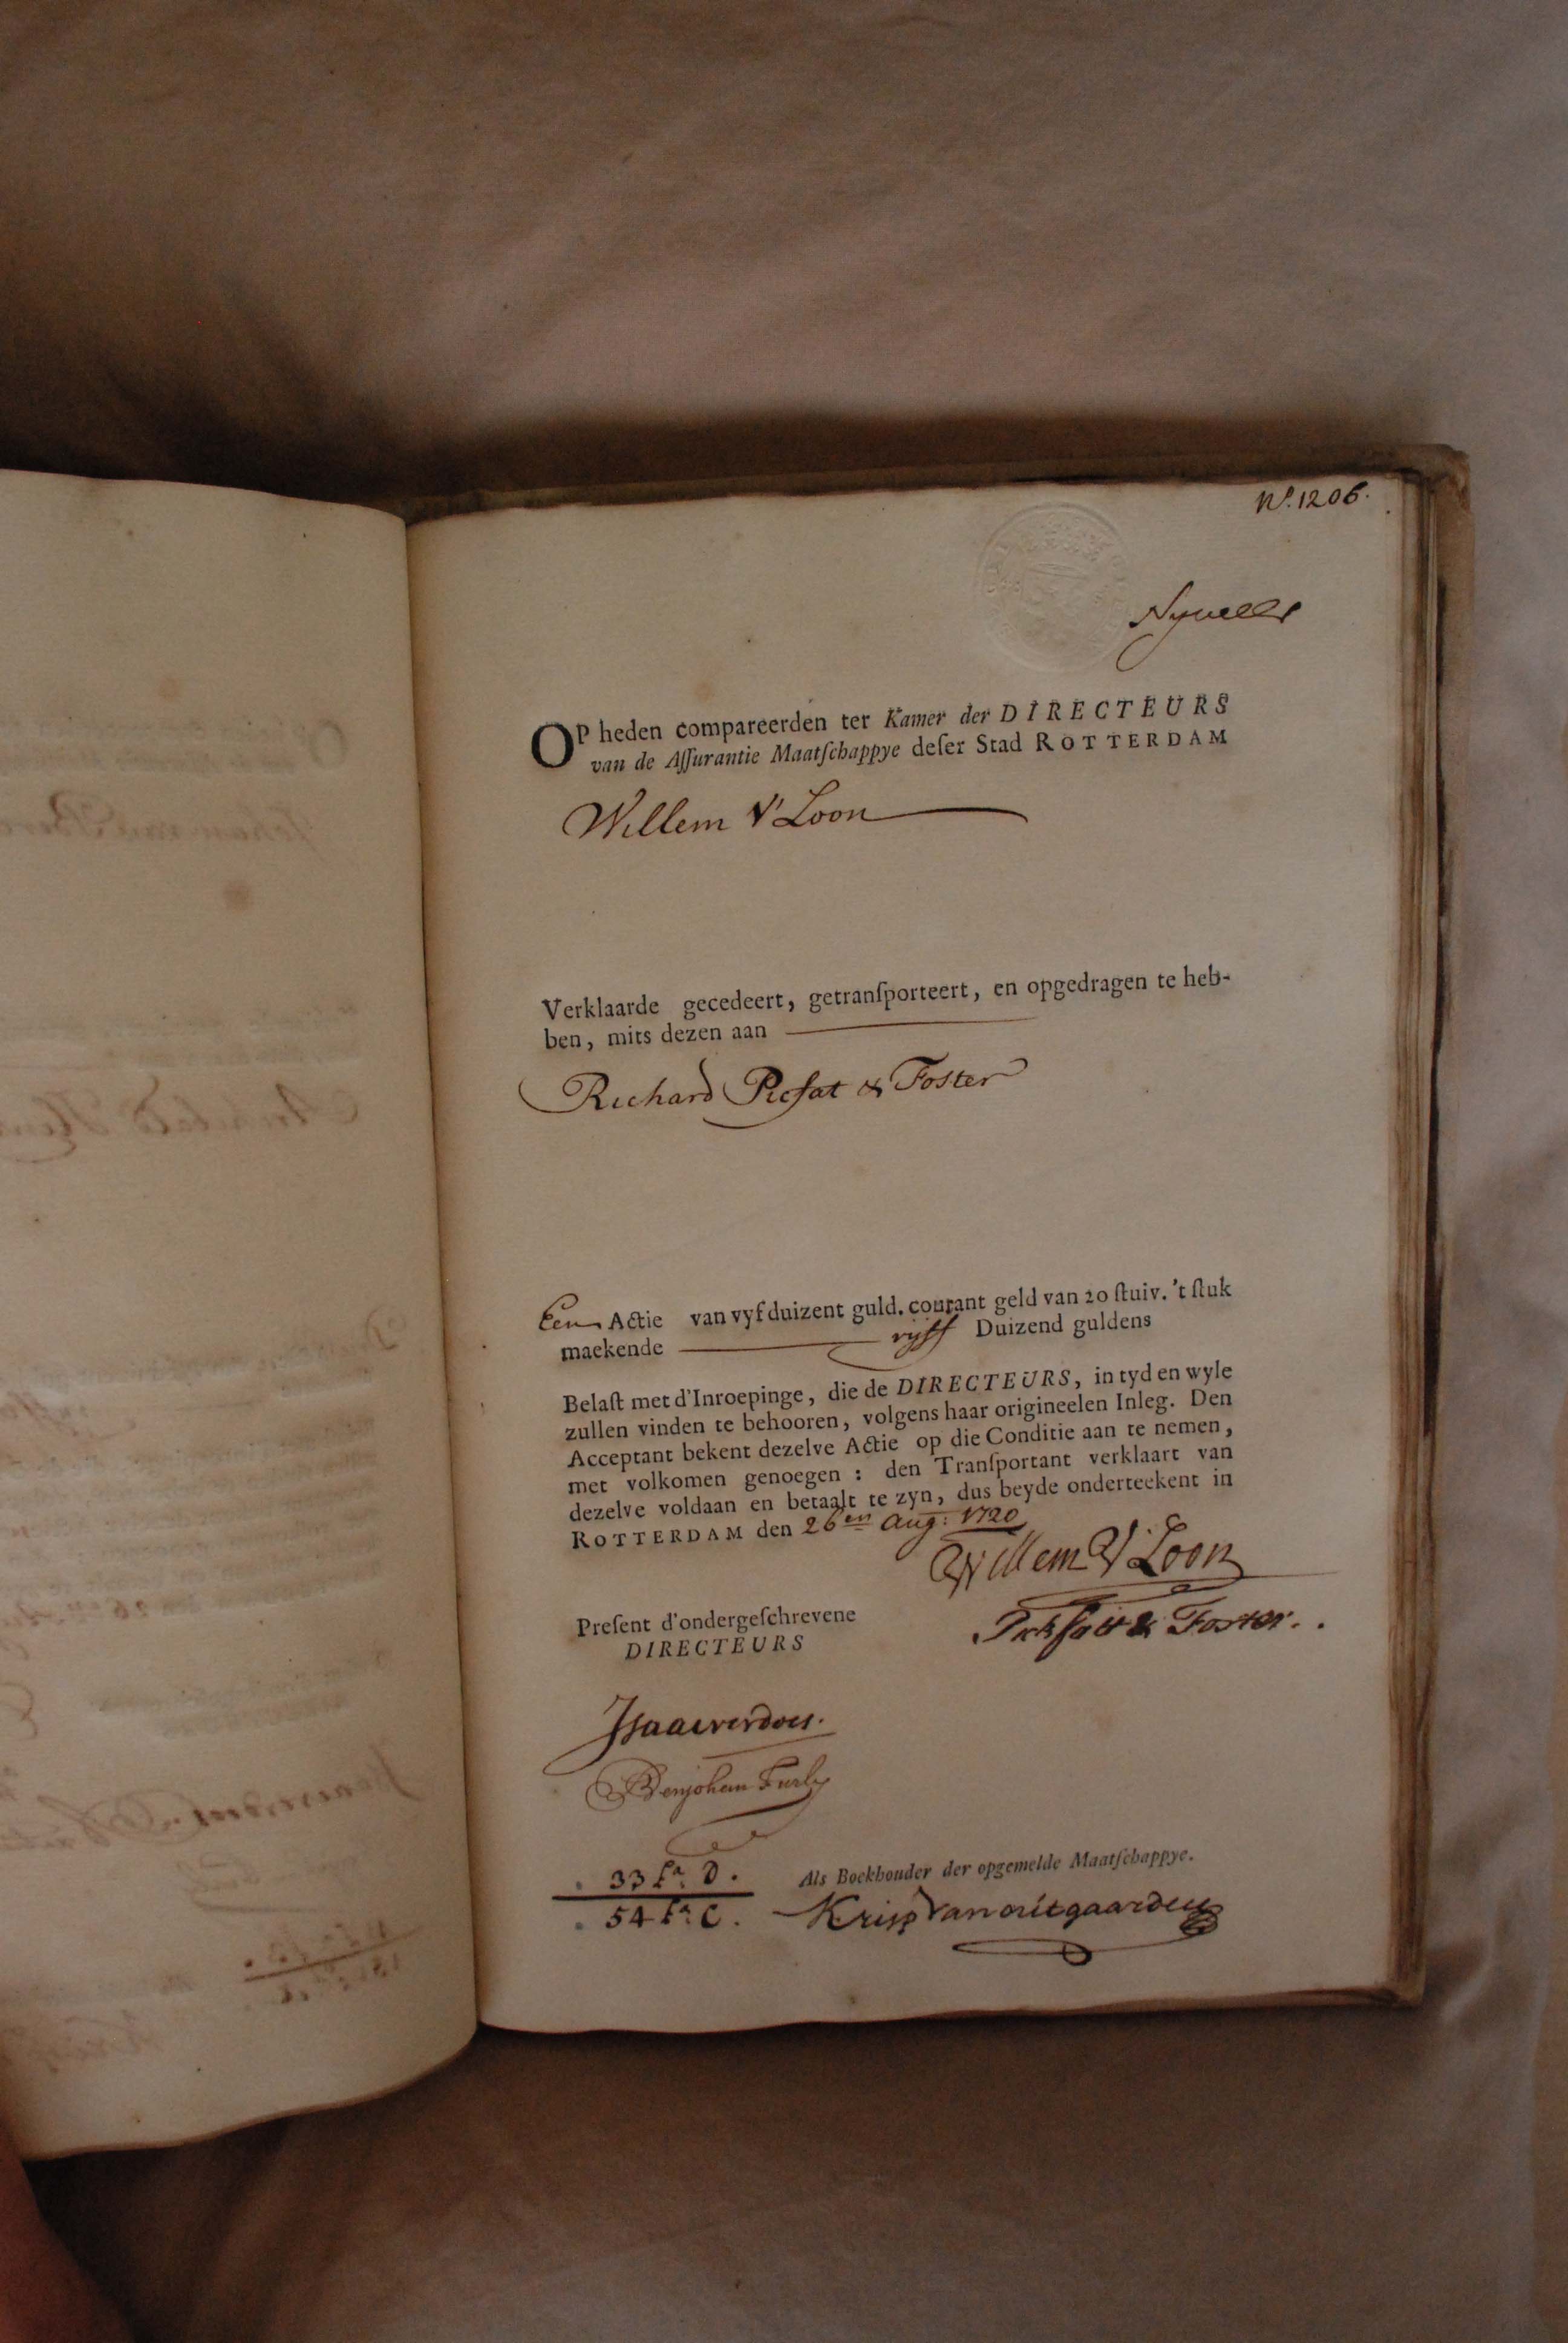 Nº. 1206.
Nyvelt
OP heden compareerden ter Kamer der DIRECTEURS
van de Aſſurantie Maatſchappye deſer Stad ROTTERDAM
Willem V Loon
Verklaarde gecedeert, getranſporteert, en opgedragen te heb-
ben, mits dezen aan
Richard & Foster
Een Actie van vyf duizent guld. courant geld van 20 ſtuiv. 't ſtuk
maekende vijff Duizend guldens
Belaſt met d'Inroepinge, die de DIRECTEURS, in tyd en wyle
zullen vinden te behooren, volgens haar origineelen Inleg. Den
Acceptant bekent dezelve Actie op die Conditie aan te nemen,
met volkomen genoegen : den Tranſportant verklaart van
dezelve voldaan en betaalt te zyn, dus beyde onderteekent in
ROTTERDAM den 26en Aug: 1720
Willem V Loon
Preſent d'ondergeſchrevene
& Foster.
DIRECTEURS
Isaac verdoes.
Benjohan Furly
33 fº. D.
Als Boekhouder der opgemelde Maatſchappye.
54 fº. C.
Krisp van outgaarden